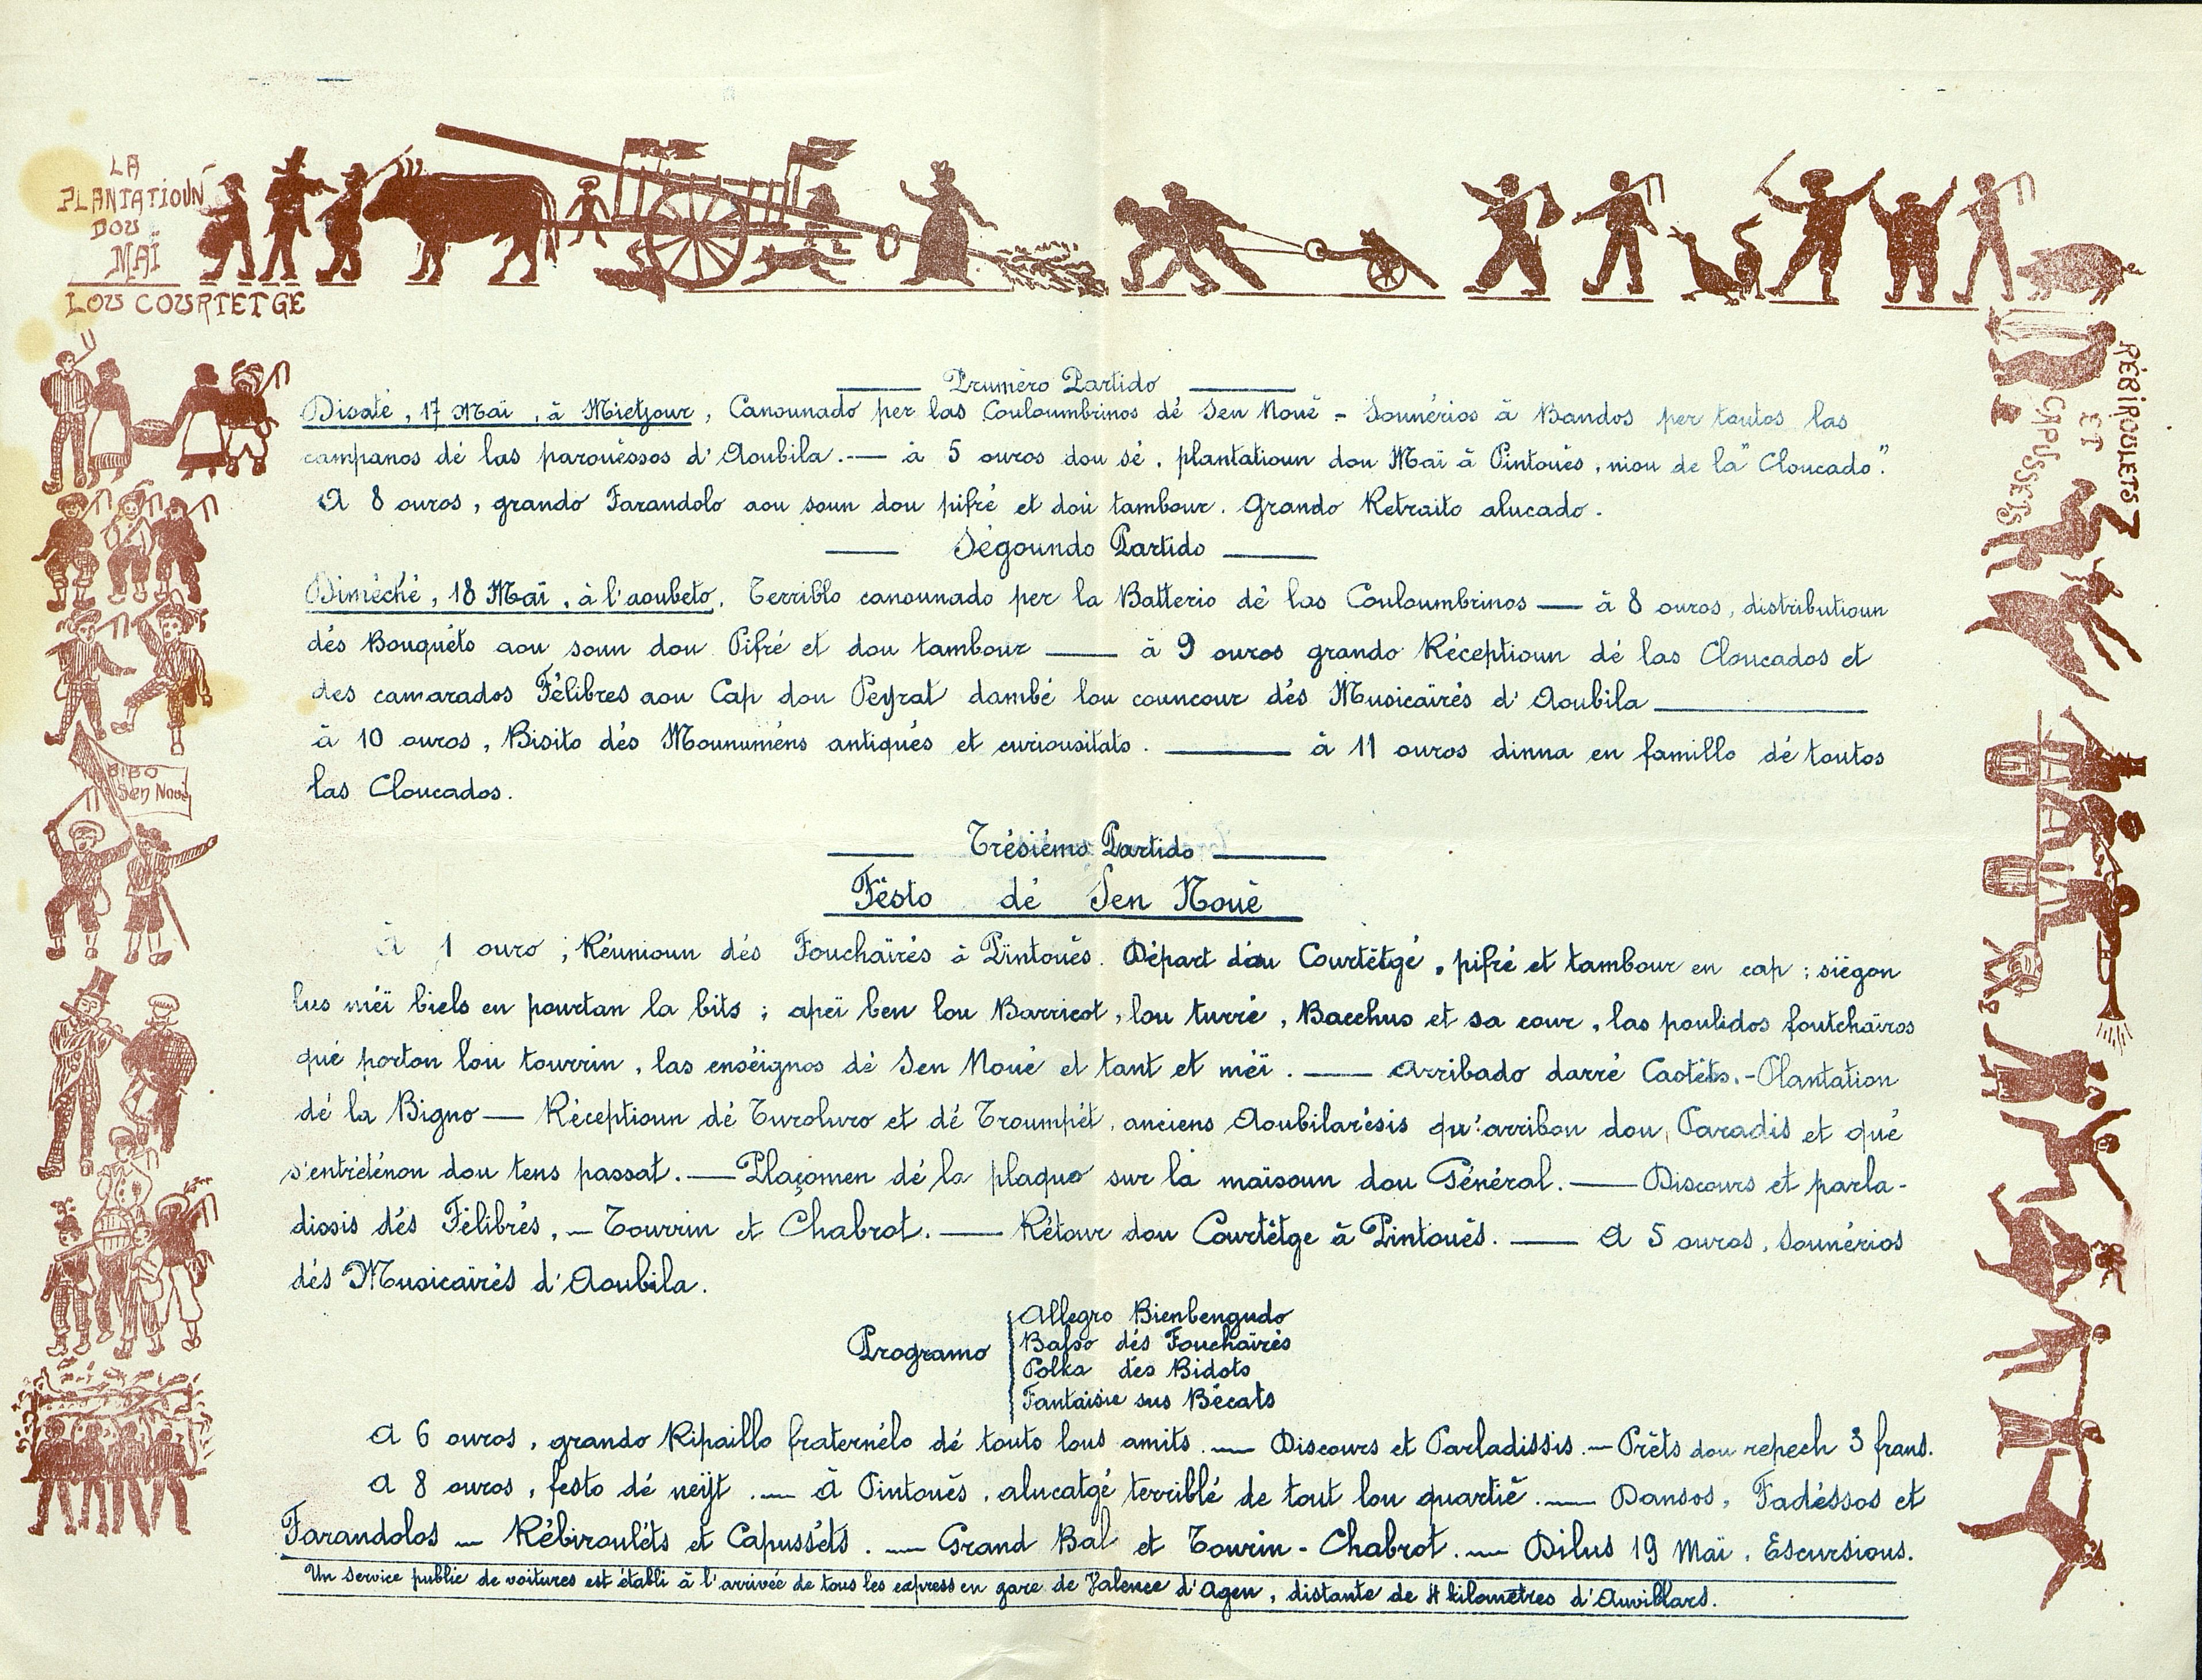 LA
PLANTATIOUN
DOU
MAÏ
LOU COURTETGE
RÉBIROULETS
ET
CAPUSSETS
BIBO
Sen Noué
Pruméro Partido
Disaté, 17 Maï, à Mietjour, Canounado per las Couloumbrinos dé Sen Noué - Sounérios à Bandos per toutos las
campanos dé las parouéssos d'Aoubila. — à 5 ouros dou sé, plantatioun dou Maï à Pintoués, niou de la "Cloucado".
A 8 ouros, grando Farandolo aou soun dou pifré et dou tambour. Grando Retraito alucado.
Ségoundo Partido
Diméché, 18 Maï, à l'aoubeto, Terriblo canounado per la Batterio dé las Couloumbrinos — à 8 ouros, distributioun
dés Bouquéts aou soun dou Pifré et dou tambour — à 9 ouros grando Réceptioun dé las Cloucados et
des camarados Félibres aou Cap dou Peyrat dambé lou councour dés Musicaïrés d'Aoubila
à 10 ouros, Bisito dés Mounuméns antiqués et curiousitats. — à 11 ouros dinna en famillo dé toutos
las Cloucados.
Trésiémo Partido
Fèsto dé Sen Noué
à 1 ouro, Réunioun dés Fouchaïrés à Pintoués. Départ dou Courtétgé, pifré et tambour en cap ; siègon
lus méï biels en pourtan la bits ; apeï ben lou Barricot, lou turré, Bacchus et sa cour, las poulidos foutchaïros
qué porton lou tourrin, las enséignos dé Sen Noué et tant et méï. — Arribado darré Castéts. - Plantation
dé la Bigno — Réceptioun dé Turoluro et dé Troumpét, anciens Aoubilarésis qu'arribon dou Paradis et qué
s'entréténon dou tens passat. — Plaçomen dé la plaquo sur la maïsoun dou Général. — Discours et parla-
dissis dés Félibrés, — Tourrin et Chabrot. — Rétour dou Courtétge à Pintoués. — A 5 ouros, Sounérios
dés Musicaïrés d'Aoubila.
Programo
Allegro Bienbengudo
Balso dés Fouchaïrés
Polka dés Bidots
Fantaisie sus Bécats
A 6 ouros, grando Ripaillo fraternélo dé touts lous amits. — Discours et Parladissis. — Préts dou repech 3 frans.
A 8 ouros, festo dé neijt. — à Pintoués, alucatgé terriblé de tout lou quartié. — Dansos, Fadéssos et
Farandolos — Rébirouléts et Capusséts. — Grand Bal et Tourin - Chabrot. — Dilus 19 Maï, Escursious.
Un service public de voitures est établi à l'arrivée de tous les express en gare de Valence d'Agen, distante de 4 kilomètres d'Auvillars.